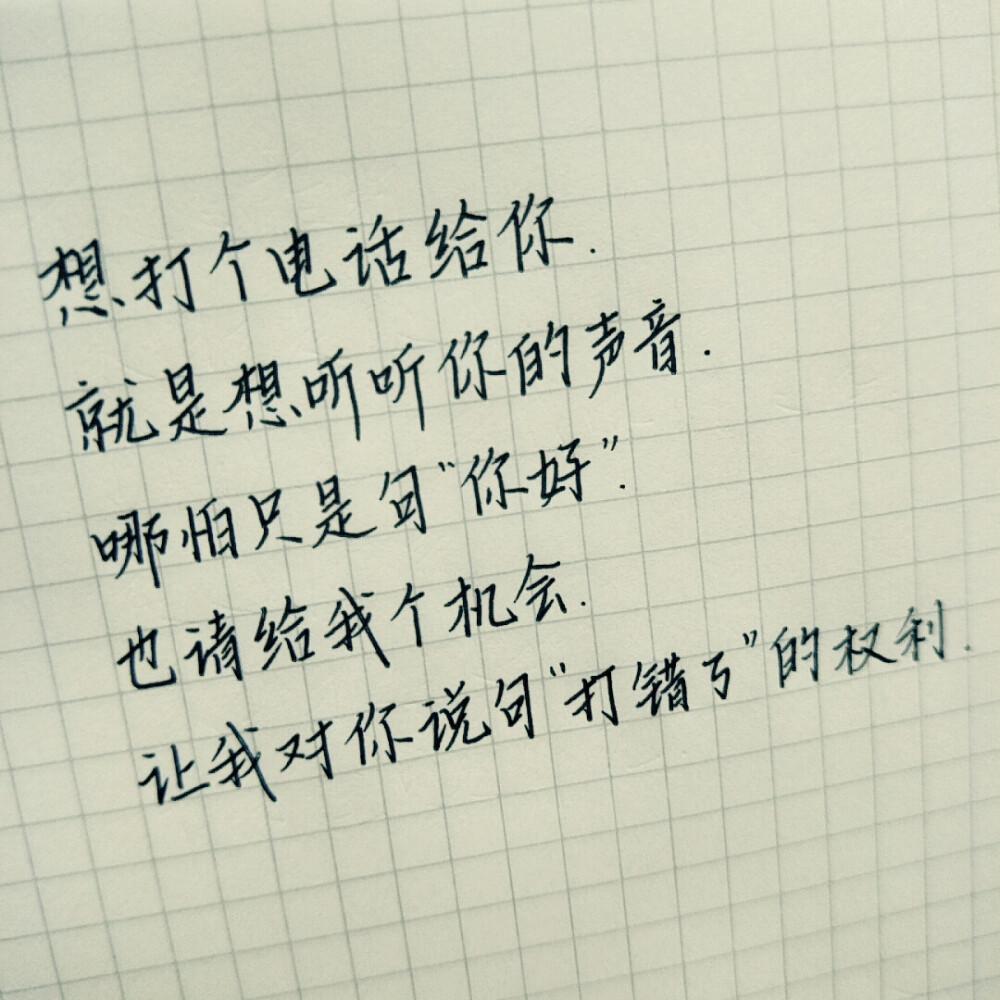 想打个电话给你.
就是想听听你的声音.
哪怕只是句“你好”.
也请给我个机会.
让我对你说句“打错了”的权利.